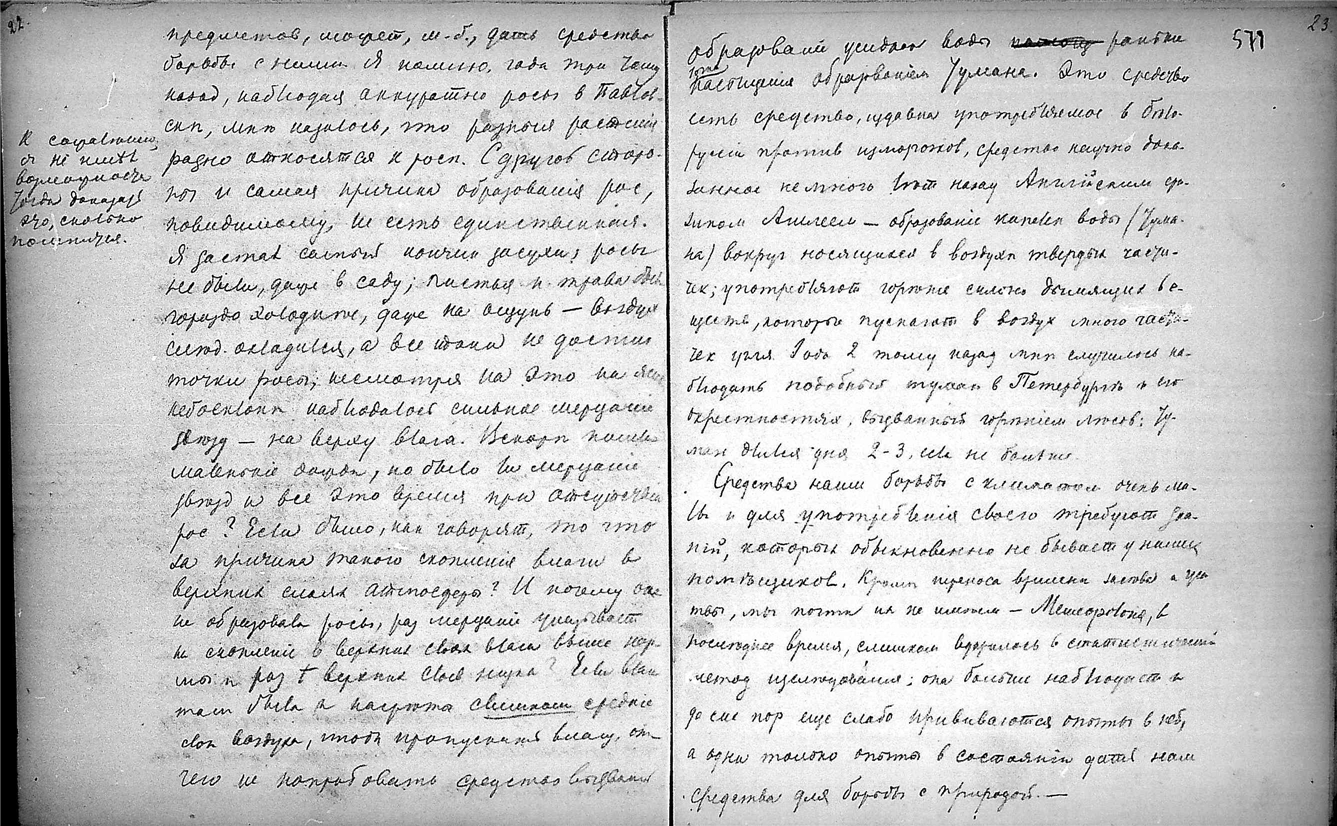 22
предметовъ, может, м.б., дать средства
борьбы с ними. Я помню, года три тому
назад, наблюдая аккуратно росы в Павлов-
ске, мне казалось, что разныя растенія
разно относятся к росе. С другой сторо-
ны и самая причина образованія рос,
повидимому, не есть единственная.
Я застал самый кончик засухи; росы
не было, даже в саду; листья и трава были
гораздо холоднее, даже на ощупь — воздух
охладился, а все таки не достиг
точки росы; несмотря на это на
небосклоне наблюдалось сильное мерцаніе
звезд — на верху влага. Вскоре пошли
маленькіе дожди, но было ли мерцаніе
звезд и все это время при отсутствіи
рос? Если было, как говорят, то что
за причина такого скопленія влаги в
верхних слоях атмосферы? И почему она
не образовала росы, раз мерцаніе указывает
на скопленіе в верхних слоях влаги выше нор-
мы и раз t верхних слоев низка? Если влаги
там была и нагрета слишком средніе
слои воздуха, чтобы пропускать влагу, от-
чего не попробовать средства вызванія
К сожалению,
я не имел
возможности
тогда доказать
это, сколько
помнится.
23
571
образованія
тогда
насыщенія образованіем тумана. Это средство
есть средство, издавна употребляемое в
против изморозков, средство научно дока-
занное немного лет назад Англійским фи-
зиком — образованіе капель воды (тума-
на) вокруг носящихся в воздухе твердых части-
чек; употребляют горенье сильно дымящих ве-
ществ, которые пускают в воздух много части-
чек угля. Года 2 тому назад мне случилось на-
блюдать подобный туман в Петербурге и его
окрестностях, вызванный горением лесов; ту-
ман длился дня 2-3, если не больше.
Средства наши борьбы с климатом очень ма-
лы и для употребленія своего требуют зна-
ній, которых обыкновенно не бывает у наших
помещиков. Кроме переноса времени посева и жа-
твы, мы почти их не имеем — Метеорологія, в
последнее время, слишком вдарилась в статистическій
метод изследованія; она больше наблюдает и
до сих пор еще слабо прививаются опыты в ней,
а одни только опыты в состояніи дать нам
средства для борьбы с природой. —